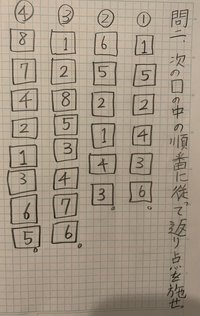 問二、次の口の中の順番に従って返り点を施せ
① 1 5 2 4 3 6。
② 6 5 2 1 4 3。
③ 1 2 8 5 3 4 7 6。
④ 8 7 4 2 1 3 6 5。